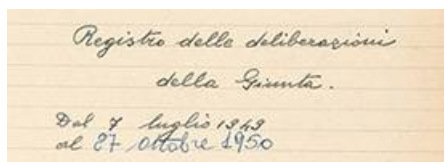 Registro delle deliberazioni
della Giunta.
Dal 7 luglio 1949
al 27 ottobre 1950